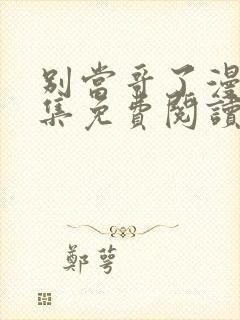 別當哥了漫
集免費閱讀
鄭萼